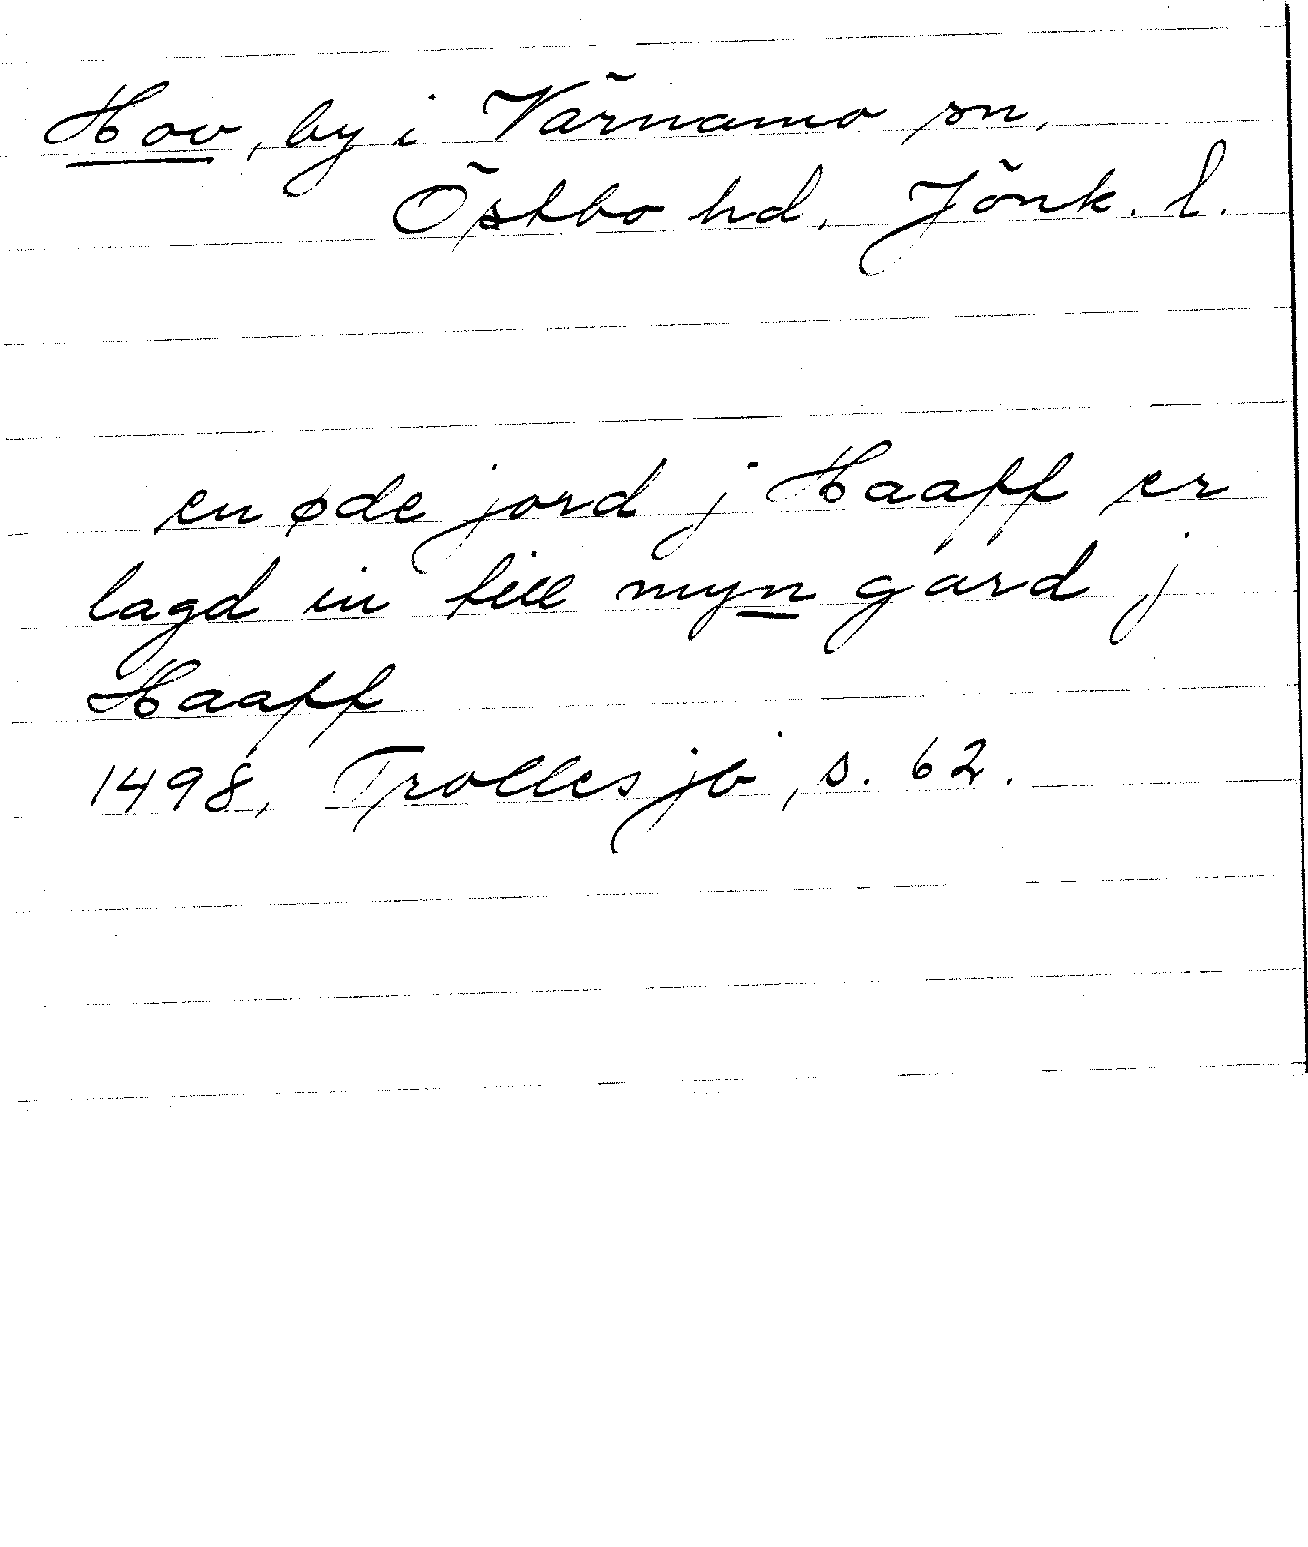 Hov, by i Värnamo sn,
Östbo hd, Jönk. l.
en øde jord j Haaff er
lagd in till myn gard j
Haaff
1498, Trolles jb, s. 62.